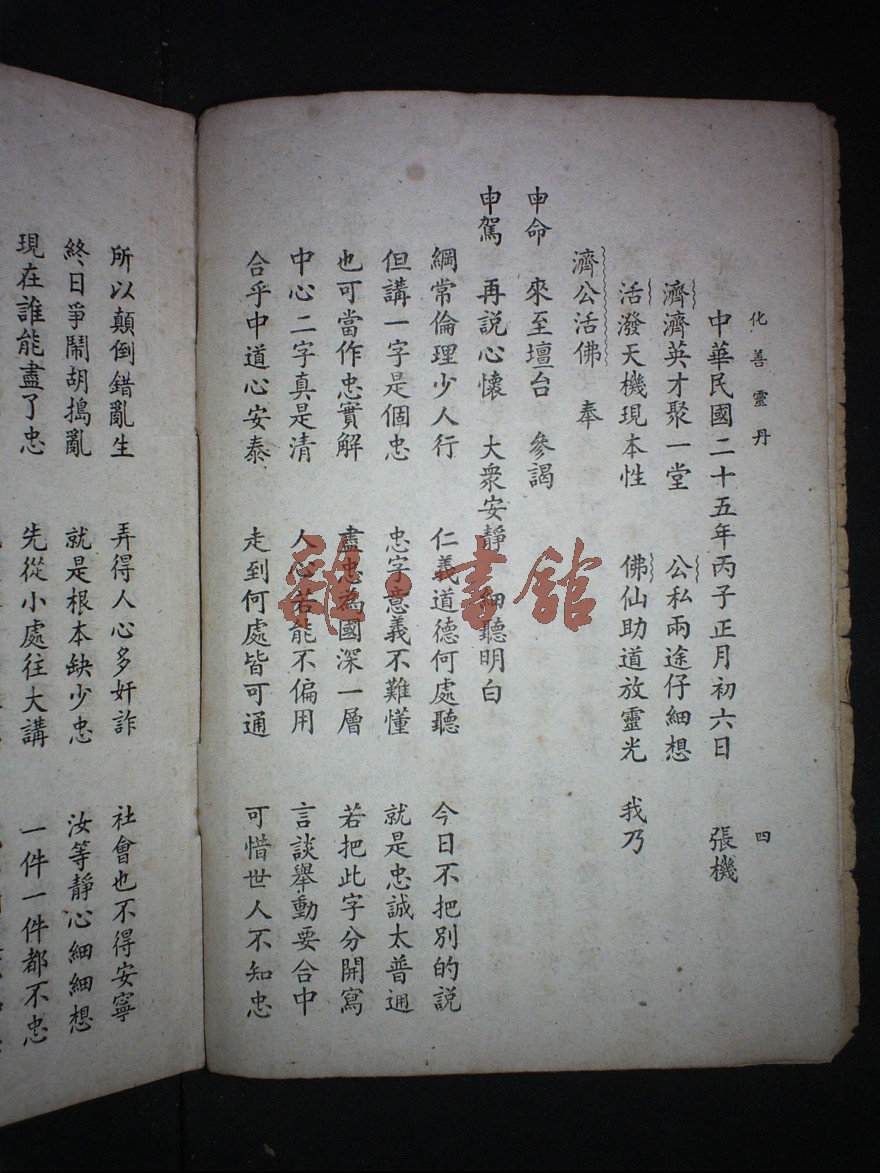 化善靈丹 四
中華民國二十五年丙子正月初六日 張機
濟濟英才聚一堂 公私兩途仔細想
活潑天機現本性 佛仙助道放靈光 我乃
濟公活佛 奉
申命 來至壇台 參謁
申駕 再説心懷 大衆安靜 細聽明白
綱常倫理少人行 仁義道德何處聽 今日不把別的説
但講一字是個忠 忠字意義不難懂 就是忠誠太普通
也可當作忠實解 盡忠為國深一層 若把此字分開寫
中心二字真是清 人心若能不偏用 言談舉動要合中
合乎中道心安泰 走到何處皆可通 可惜世人不知忠
所以顛倒錯亂生 弄得人心多奸詐 社會也不得安寧
終日爭鬧胡搗亂 就是根本缺少忠 汝等靜心細細想
現在誰能盡了忠 先從小處往大講 一件一件都不忠
書館